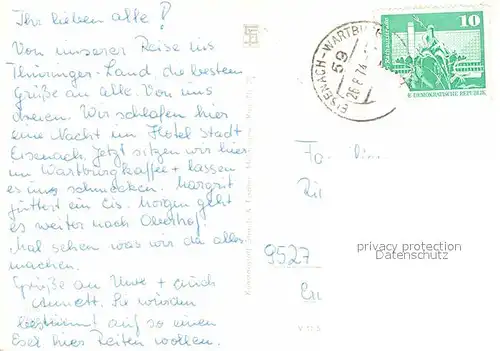 Ihr lieben alle!
Von unserer Reise ins
Thüringer-Land, die besten
Grüße an alle. Von uns
dreien. Wir schlafen hier
eine Nacht im Hotel Stadt
Eisenach. Jetzt sitzen wir hier
im Wartburgkaffee + lassen
es uns schmecken. Margrit
füttert ein Eis. Morgen geht
es weiter nach Oberhof.
Mal sehen was wir da alles
machen.
Grüße an Uwe + auch
Annett. Sie würden
bestimmt auf so einen
Esel hier Reiten wollen.
EISENACH-WARTBURG
59
26.8.74
10
DEMOKRATISCHE REPUBLIK
Fa
9527
privacy protection
Datenschutz
V 11